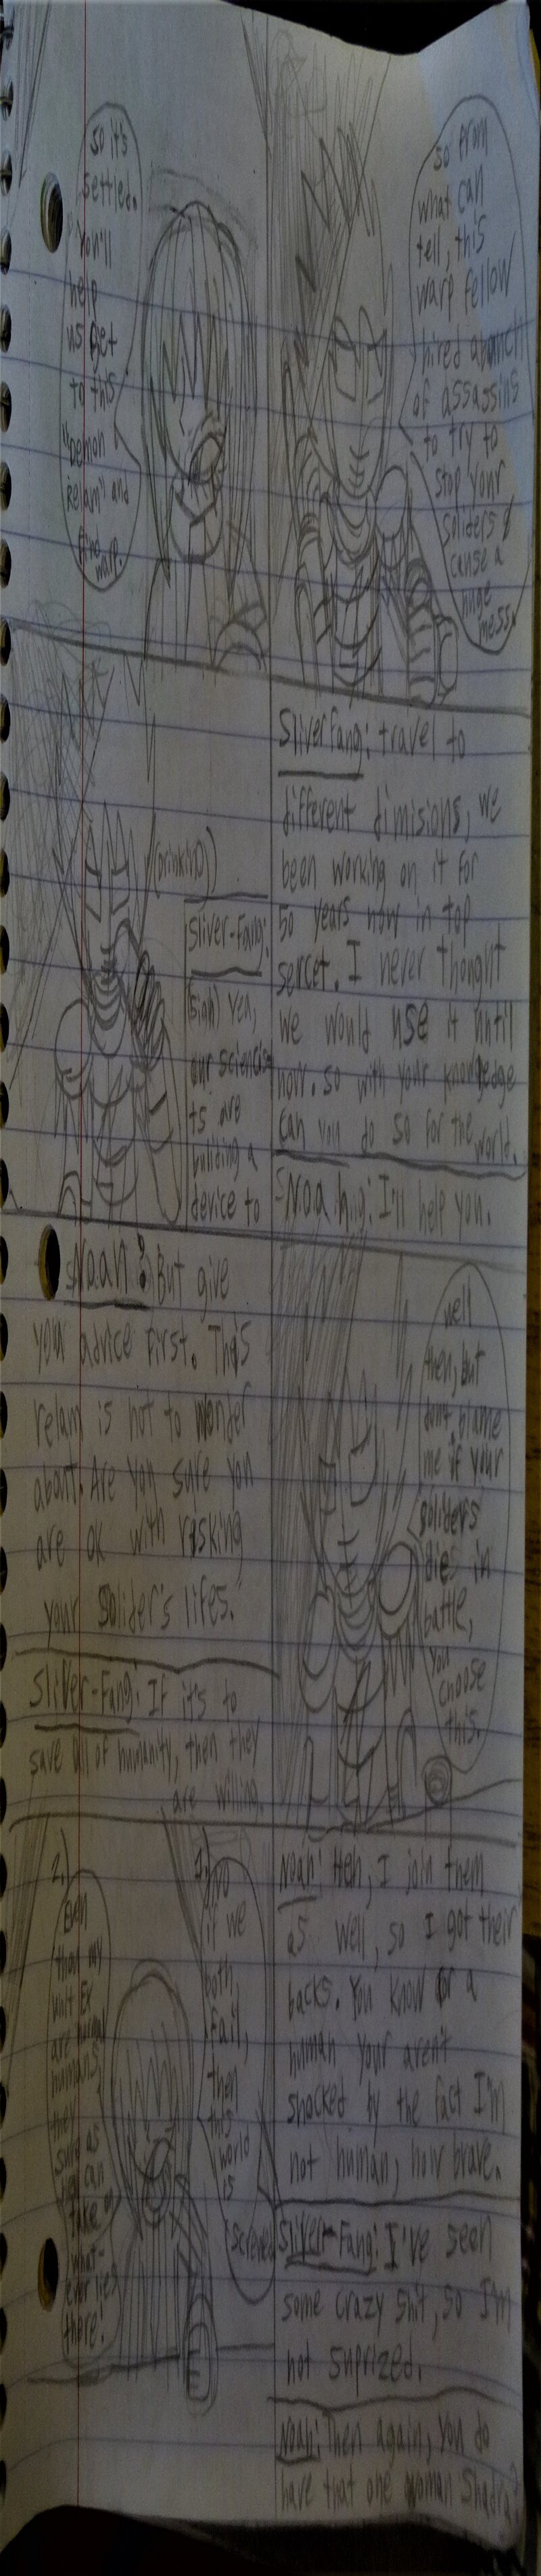 So it's
settled.
You'll
help
us get
to this
"Demon
Relam" and
find
warp.
so from
what can
tell, this
warp fellow
hired abunch
of assassins
to try to
stop your
soliders &
cause a
huge
mess.
(Drinking)
Sliver-Fang:
(sigh) Yea,
our scientis
ts are
building a
device to
Sliver Fang: travel to
different dimisions, we
been working on it for
50 years now in top
sercet. I never thought
we would use it until
now. so with your knowledge
can you do so for the world.
-Noah: I'll help you.
Noah: But give
your advice first. This
relam is not to wonder
about. Are you sure you
are ok with risking
your solider's lifes.
Sliver-Fang: If it's to
save all of humanity, then they
are willing.
well
then, but
dont blame
me if your
soliders
die in
battle,
you
choose
this.
1.) And
if we
both
fail,
then
this
world
is
screwed
2.) Even
that my
unit Ex
are normal
humans,
they
sure as
hell can
take
what-
ever lies
there!
Noah: Heh, I join them
as well, so I got their
backs. You know for a
human your aren't
shocked by the fact I'm
not human, how brave.
Sliver-Fang: I've seen
some crazy shit, so I'm
not suprized.
Noah: Then again, you do
have that one woman Shadra?